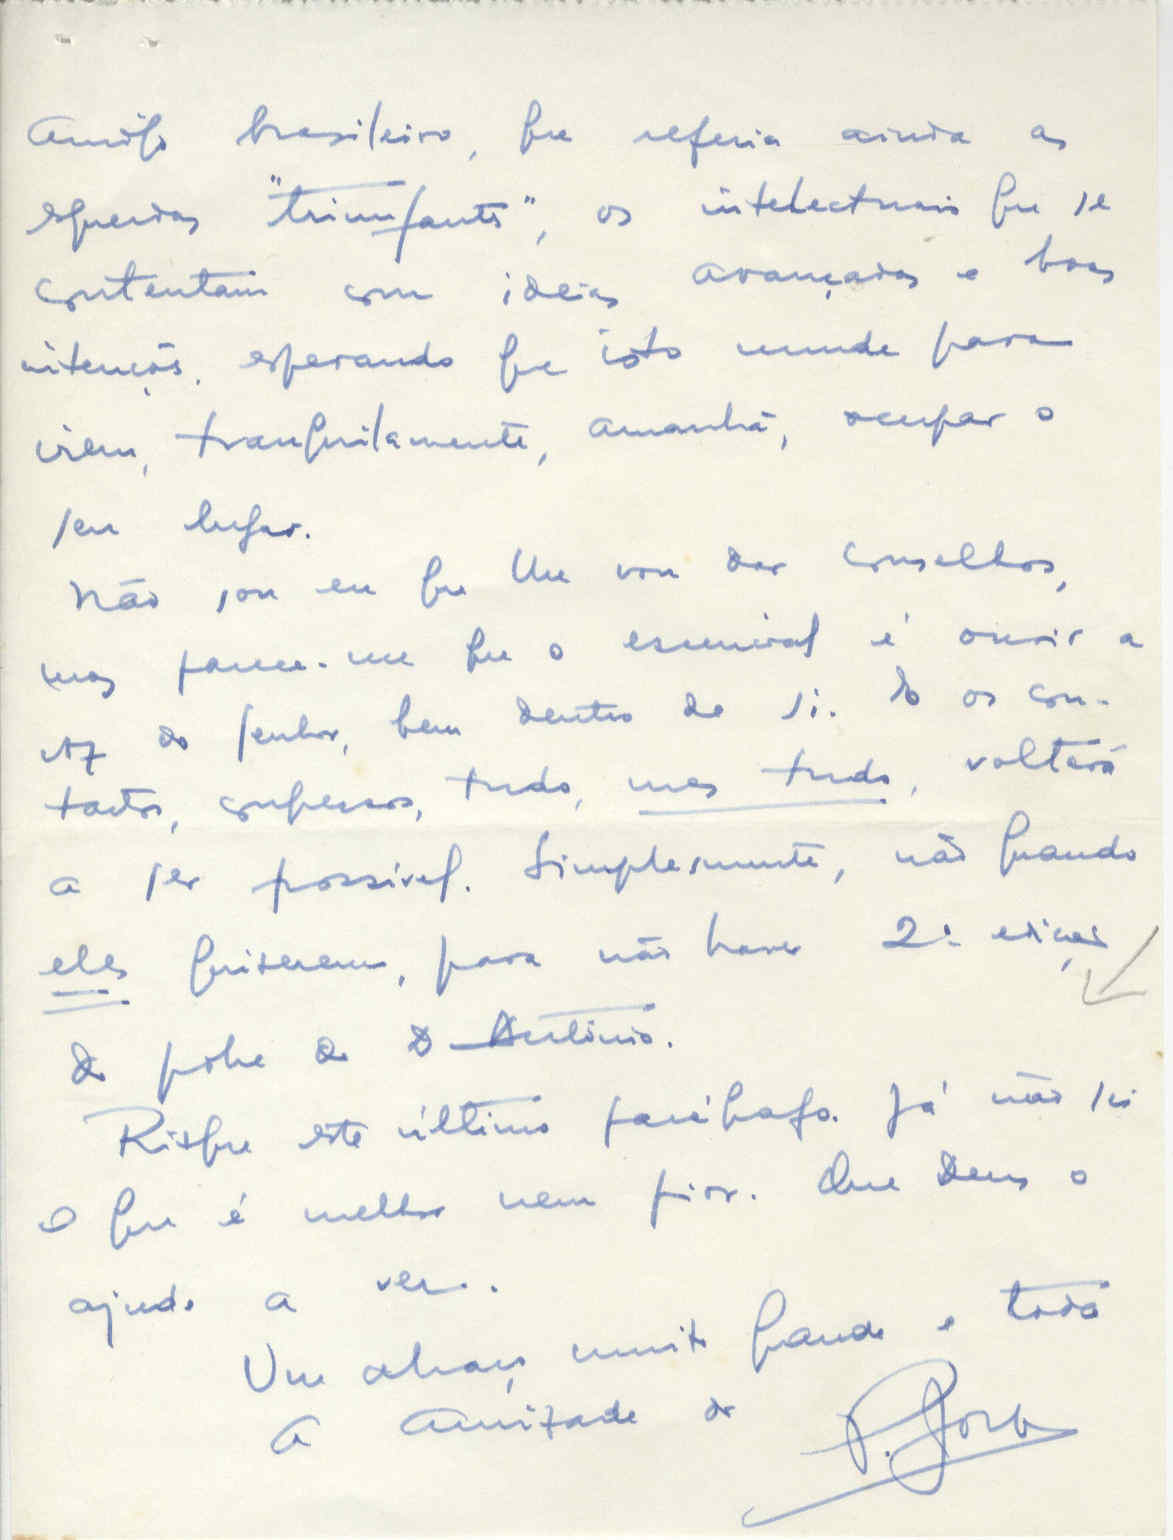 amigo brasileiro, que referia ainda as
esquerdas "triunfants", os intelectuais que se
contentam com ideias avançadas e boas
intenções, esperando que isto mude para
irem, tranquilamente, amanhã, ocupar o
seu lugar.
Não sou eu que lhe vou dar conselhos,
mas parece-me que o essencial é ouvir a
voz do Senhor, bem dentro de si. E os con-
tactos, conversas, tudo, mas tudo, voltará
a ser possível. Simplesmente, não quando
eles quiserem, para não haver 2ª edição
do pobre do D António.
Risque este último parágrafo. Já não sei
o que é melhor nem pior. Que Deus o
ajude a ver.
Um abraço muito grande e toda
a amizade do